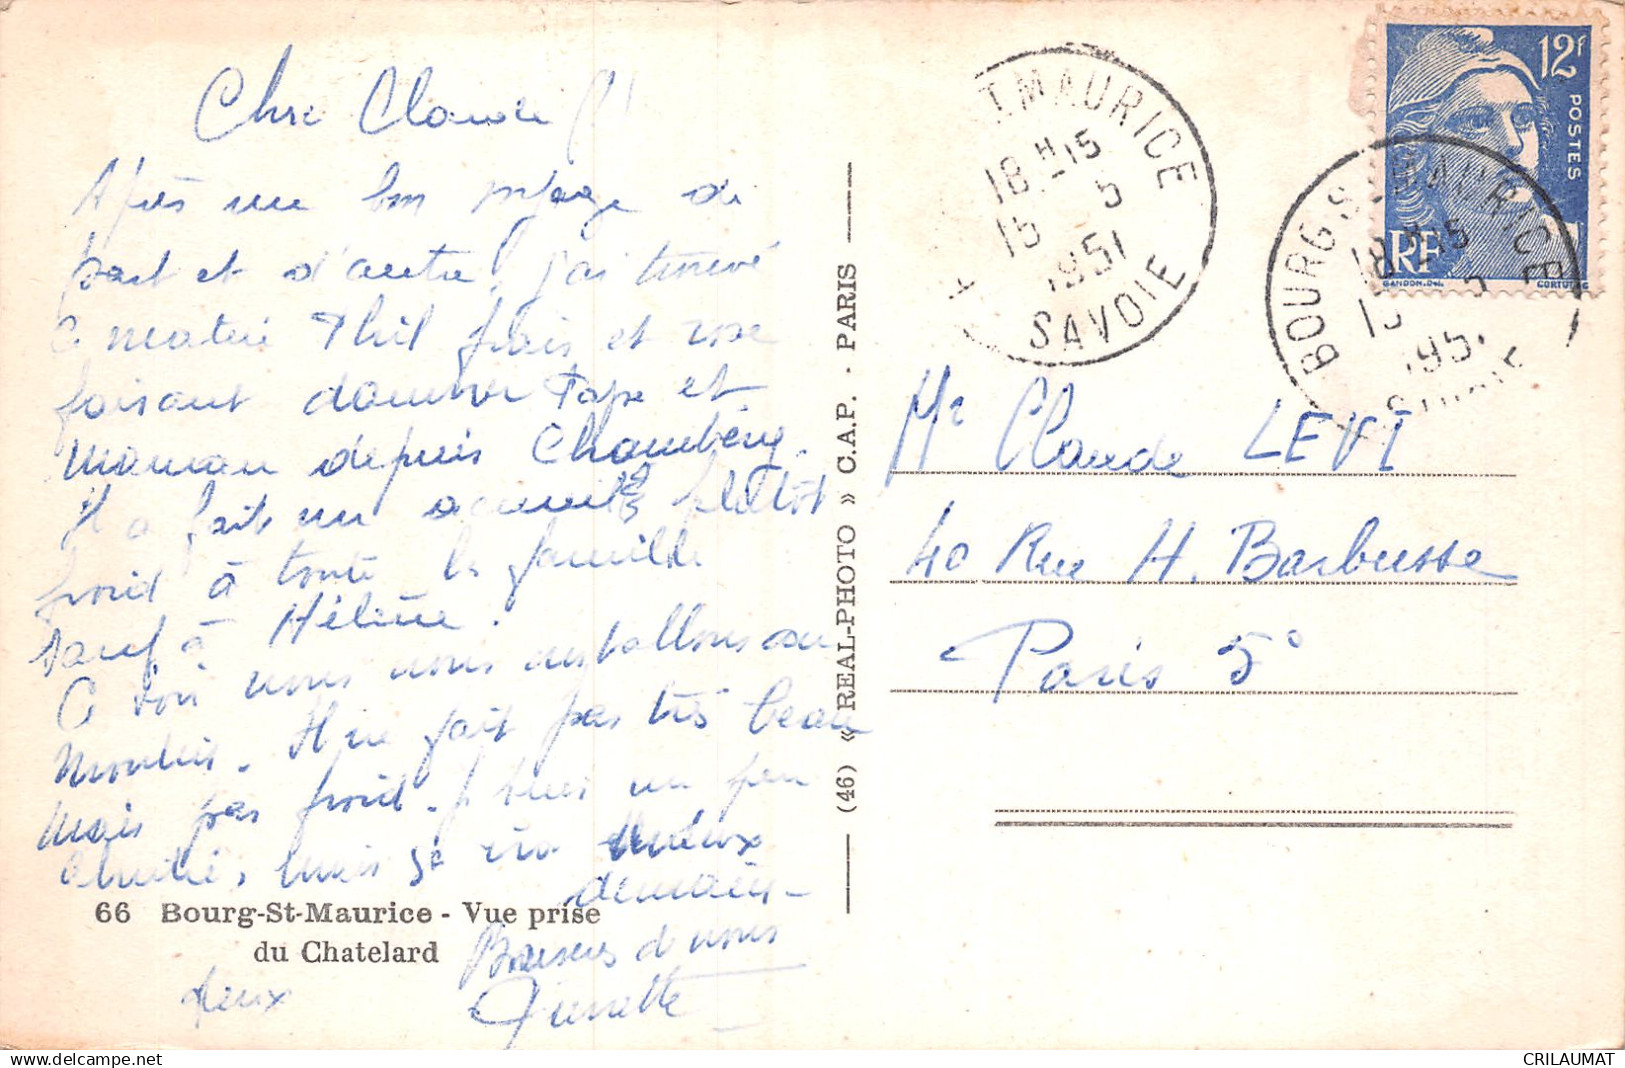 Cher Claude
Après un bon voyage de
part et d'autre, j'ai trouvé
ce matin Phil frais et rose
faisant dammer Papa et
maman depuis Chambéry.
Il a fait un accueil plutôt
froid à toute la famille
sauf à Hélène.
Ce soir nous nous installons au
Moulin. Il ne fait pas très beau
mais pas froid. J'étais un peu
mais ça ira mieux
demain -
Baisers de nous
deux
66 Bourg-St-Maurice - Vue prise
du Chatelard
(46) « REAL-PHOTO » C.A.P. - PARIS
T MAURICE
18 H 15
15 5
1951
SAVOIE
12F
POSTES
RF
GANDON.DEL.
CORTOT SC
BOURG ST MAURICE
18 H 15
15 5
1951
SAVOIE
Mr Claude LEVI
40 Rue H. Barbusse
Paris 5°
CRILAUMAT